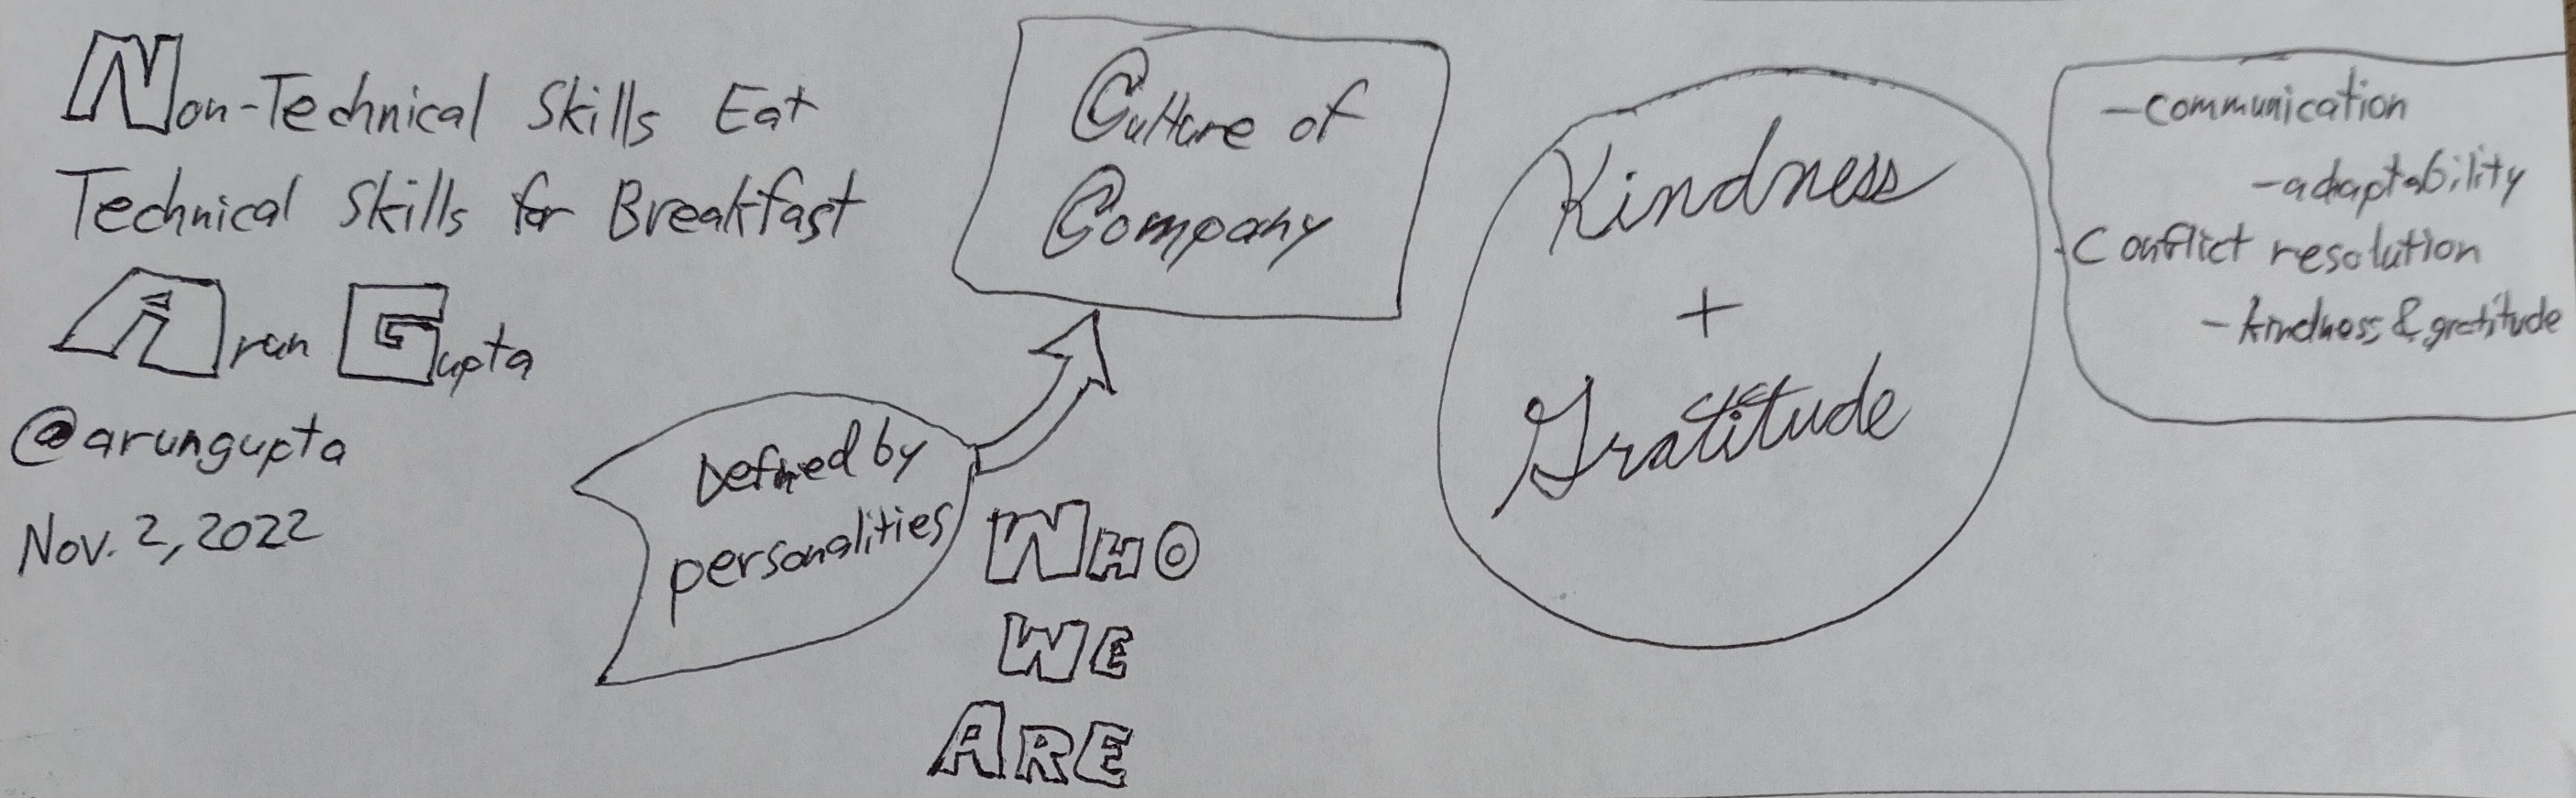 Non-Technical Skills Eat
Technical Skills for Breakfast
Arun Gupta
@arungupta
Nov. 2, 2022
Culture of
Company
Defined by
personalities
WHO
WE
ARE
Kindness
+
Gratitude
-communication
-adaptability
-Conflict resolution
-kindness & gratitude